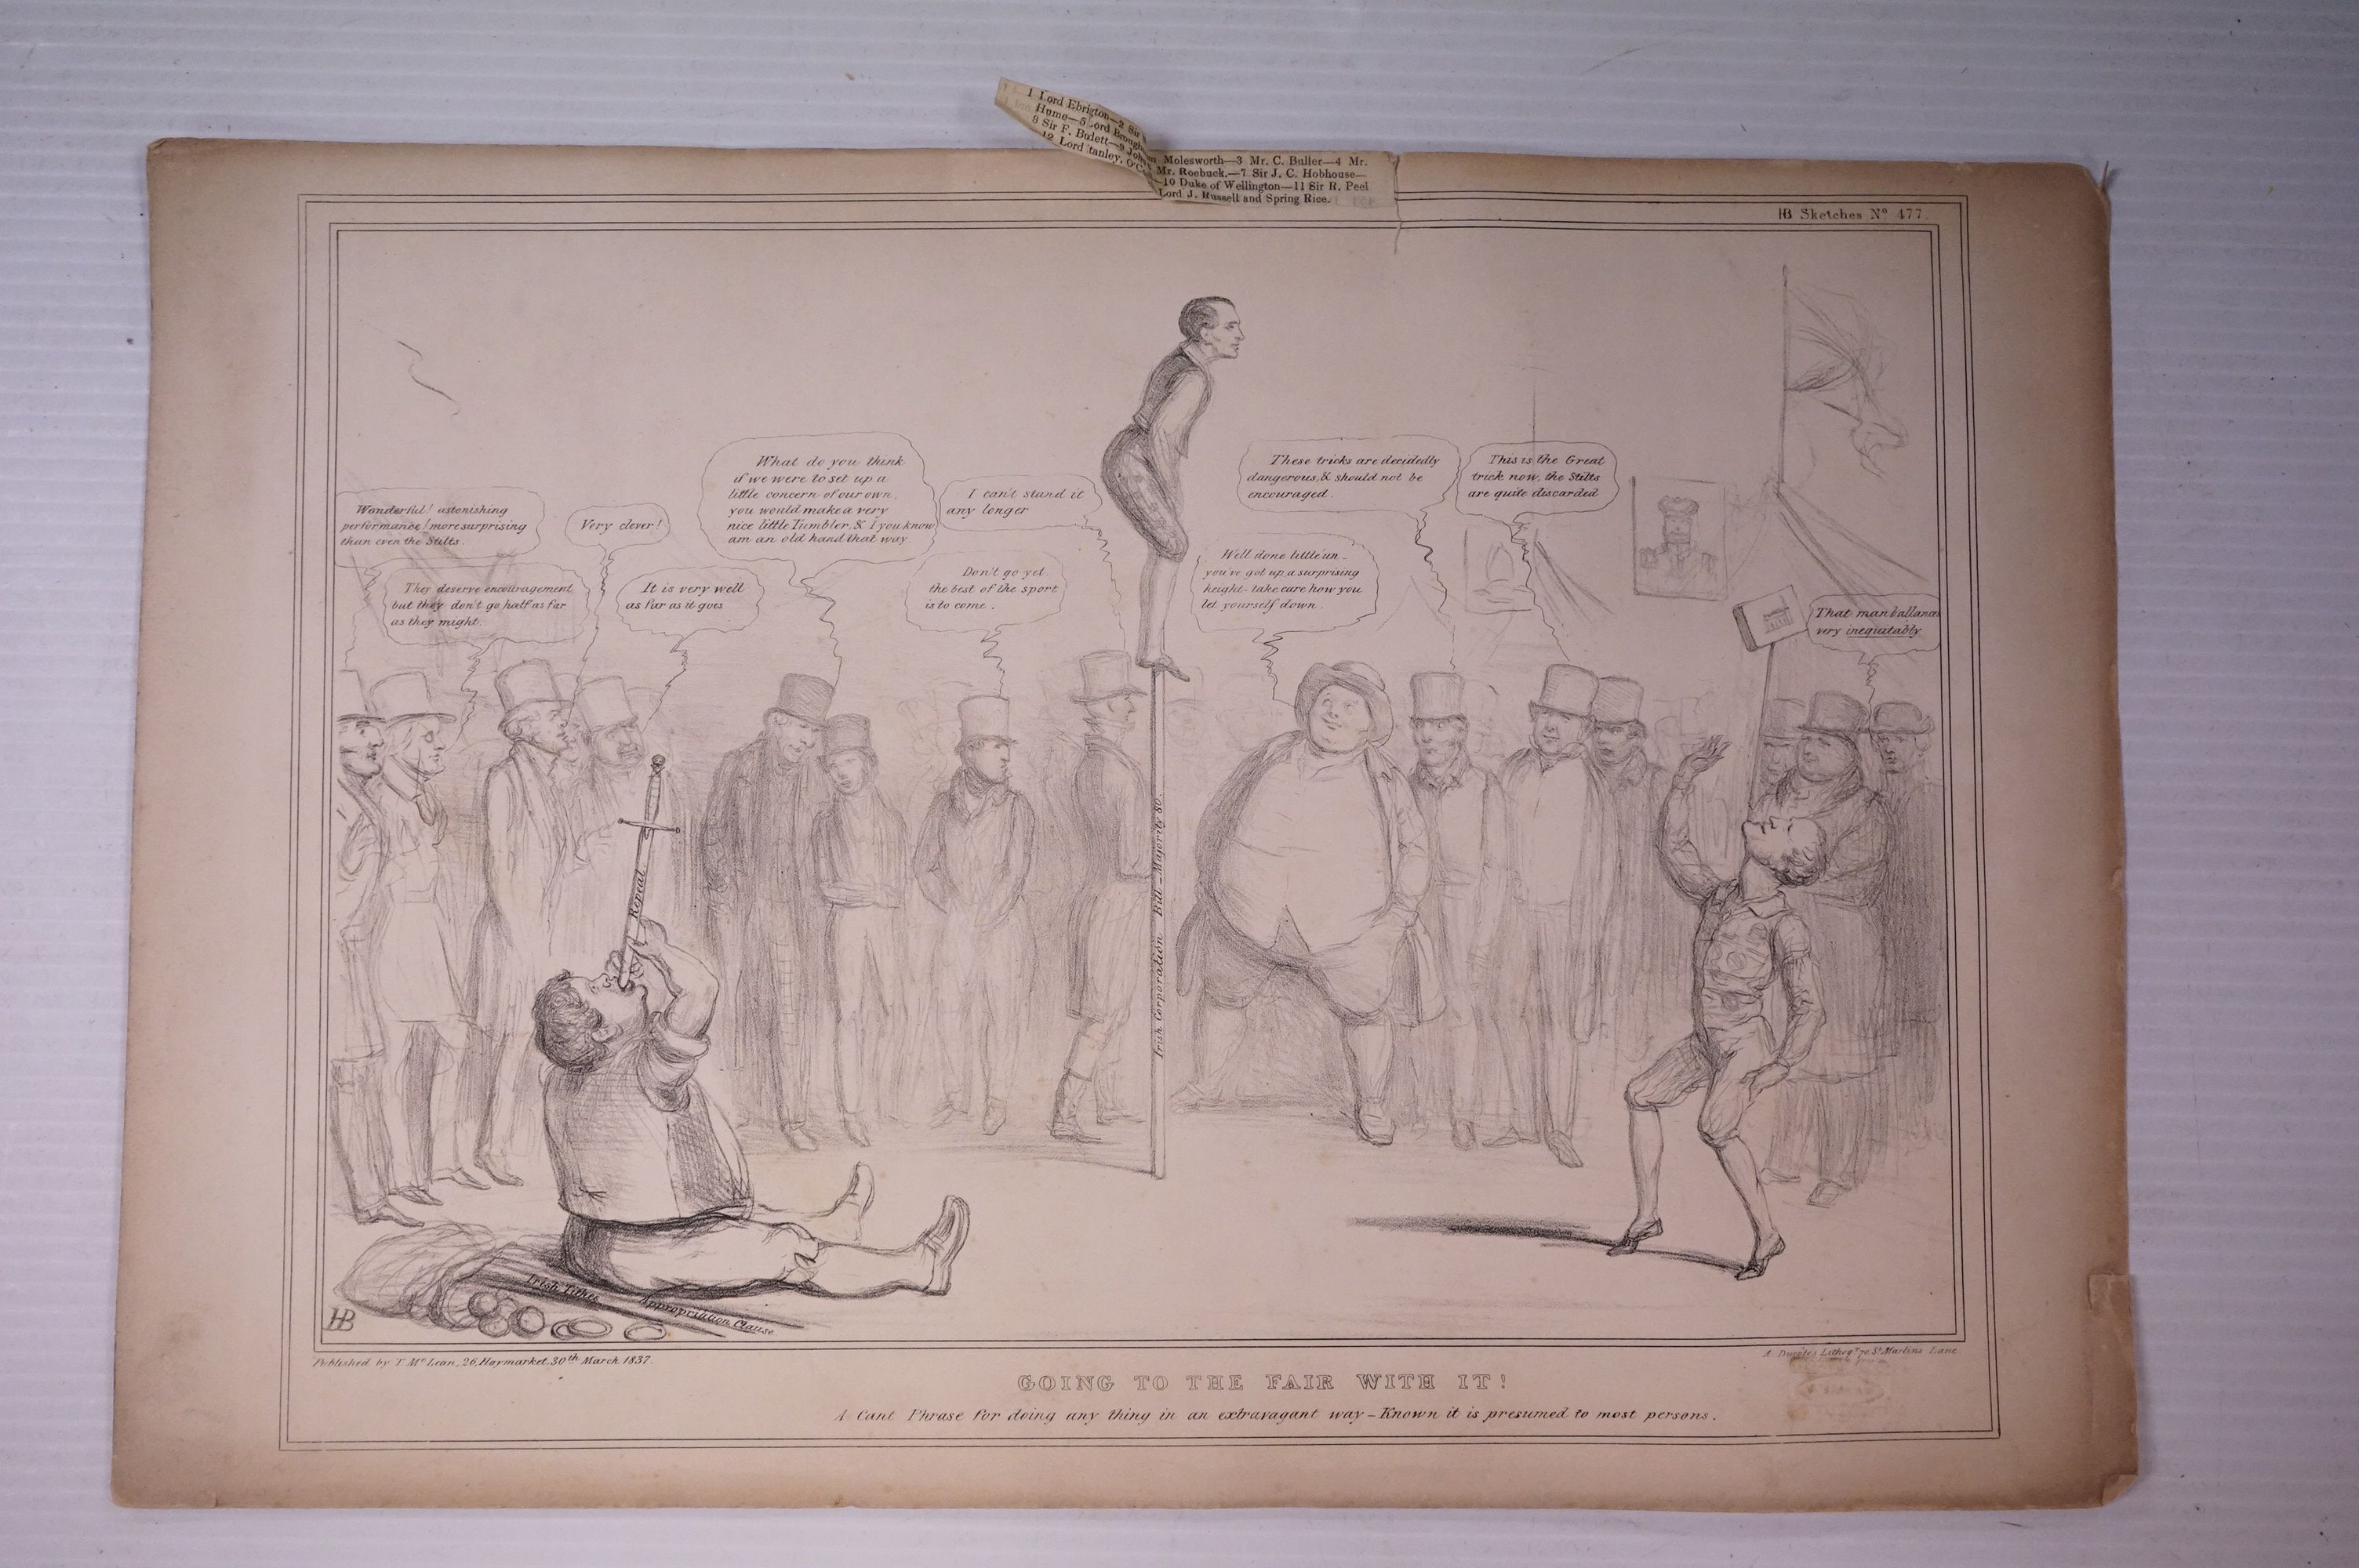 1 Lord Ebrigton—2 Sir
Molesworth—3 Mr. C. Buller—4 Mr.
Hume—5 Lord Brougham
Mr. Roebuck,—7 Sir J. C. Hobhouse—
8 Sir F. Budett—9 John
—10 Duke of Wellington—11 Sir R. Peel
12 Lord tanley, O'C
Lord J. Russell and Spring Rice.
HB Sketches No. 477.
What do you think
if we were to set up a
little concern of our own,
you would make a very
nice little Tumbler, & I you know
am an old hand that way.
These tricks are decidedly
dangerous, & should not be
encouraged.
This is the Great
trick now, the Stilts
are quite discarded
Wonderful! astonishing
performance! more surprising
than even the Stilts.
Very clever!
I can't stand it
any longer
They deserve encouragement
but they don't go half as far
as they might.
It is very well
as far as it goes
Don't go yet
the best of the sport
is to come.
Well done little'un—
you've got up a surprising
height—take care how you
let yourself down.
That man ballances
very inequitably
Repeal
Irish Corporation Bill—Majority 80.
Irish Tithes
Appropriation Clause
HB
Published by T. McLean, 26, Haymarket, 30th March 1837.
A. Ducôtes Lithogy. 70, St. Martins Lane.
GOING TO THE FAIR WITH IT!
A Cant Phrase for doing any thing in an extravagant way—Known it is presumed to most persons.